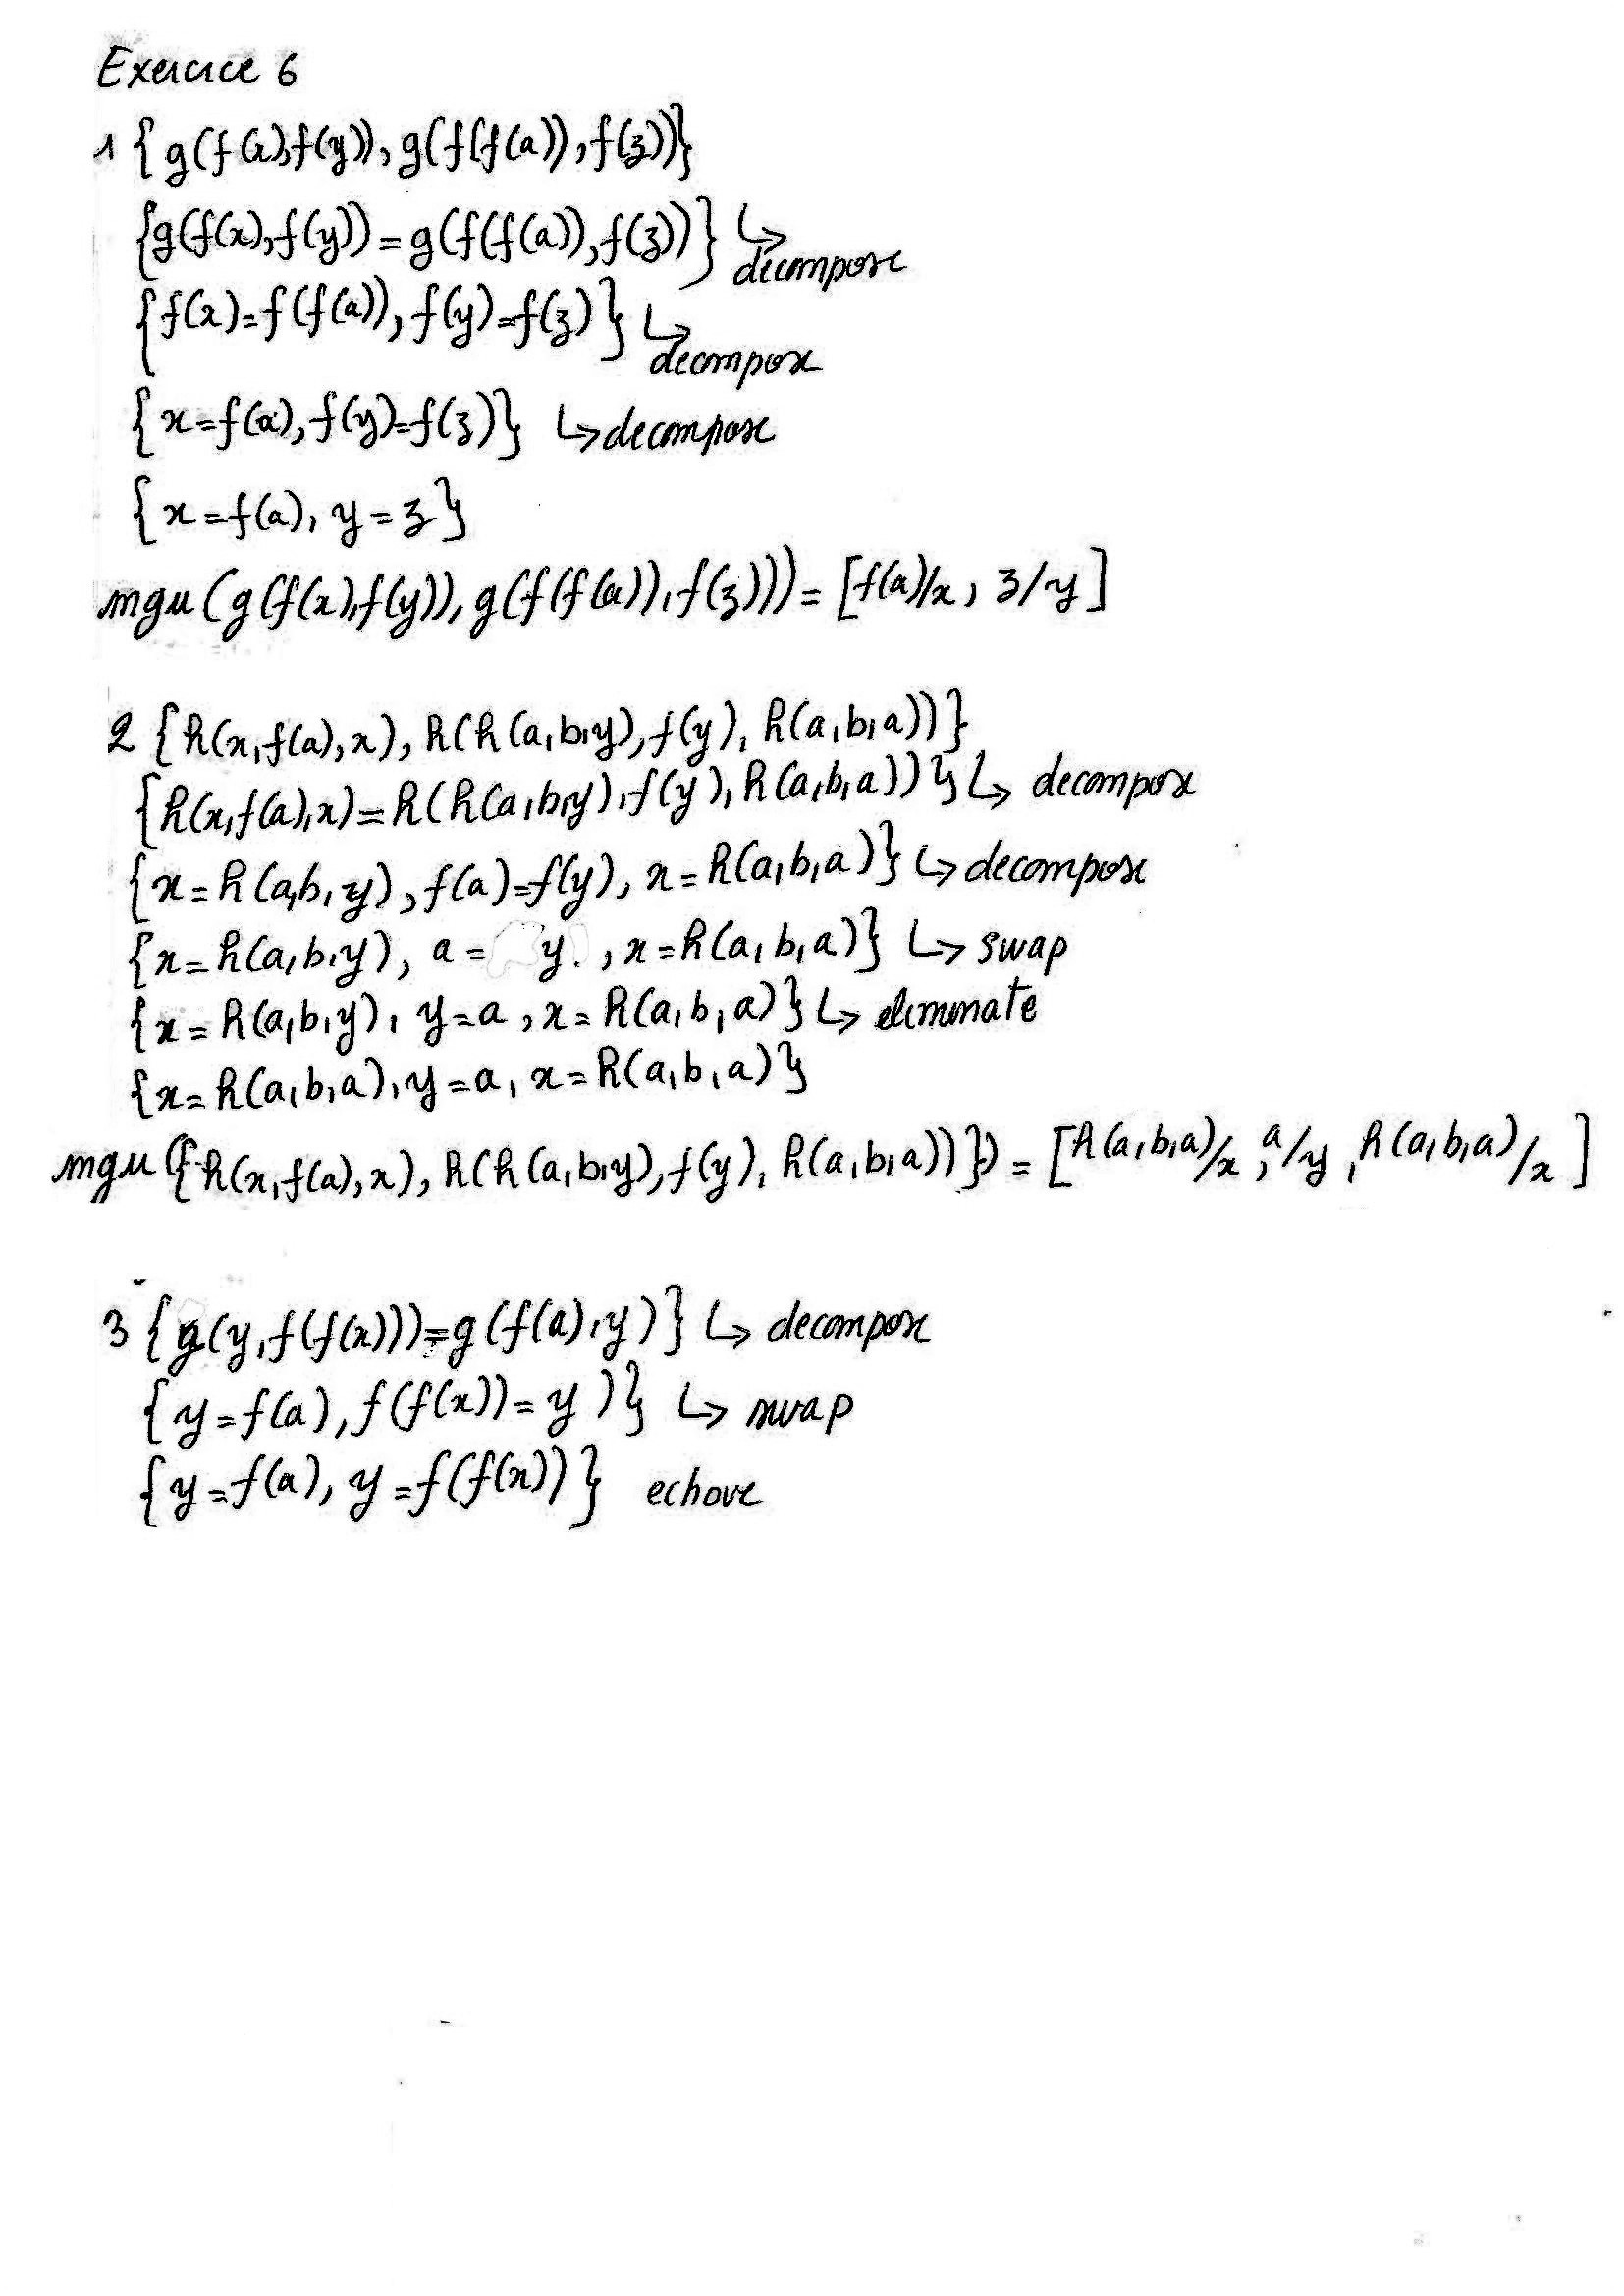 Exercice 6
1 {g(f(x),f(y)), g(f(f(a)), f(z))}
{g(f(x),f(y)) = g(f(f(a)),f(z))} ↳ decompose
{f(x)=f(f(a)), f(y)=f(z)} ↳ decompose
{x=f(a), f(y)=f(z)} ↳ decompose
{x=f(a), y=z}
mgu(g(f(x),f(y)), g(f(f(a)),f(z))) = [f(a)/x, z/y]
2 {h(x,f(a),x), h(h(a,b,y),f(y),h(a,b,a))}
{h(x,f(a),x)=h(h(a,b,y),f(y),h(a,b,a))} ↳ decompose
{x=h(a,b,y), f(a)=f(y), x=h(a,b,a)} ↳ decompose
{x=h(a,b,y), a= y, x=h(a,b,a)} ↳ swap
{x=h(a,b,y), y=a, x=h(a,b,a)} ↳ eliminate
{x=h(a,b,a), y=a, x=h(a,b,a)}
mgu({h(x,f(a),x), h(h(a,b,y),f(y),h(a,b,a))}) = [h(a,b,a)/x, a/y, h(a,b,a)/x]
3 {g(y,f(f(x)))=g(f(a),y)} ↳ decompose
{y=f(a), f(f(x))=y)} ↳ swap
{y=f(a), y=f(f(x))} echoue